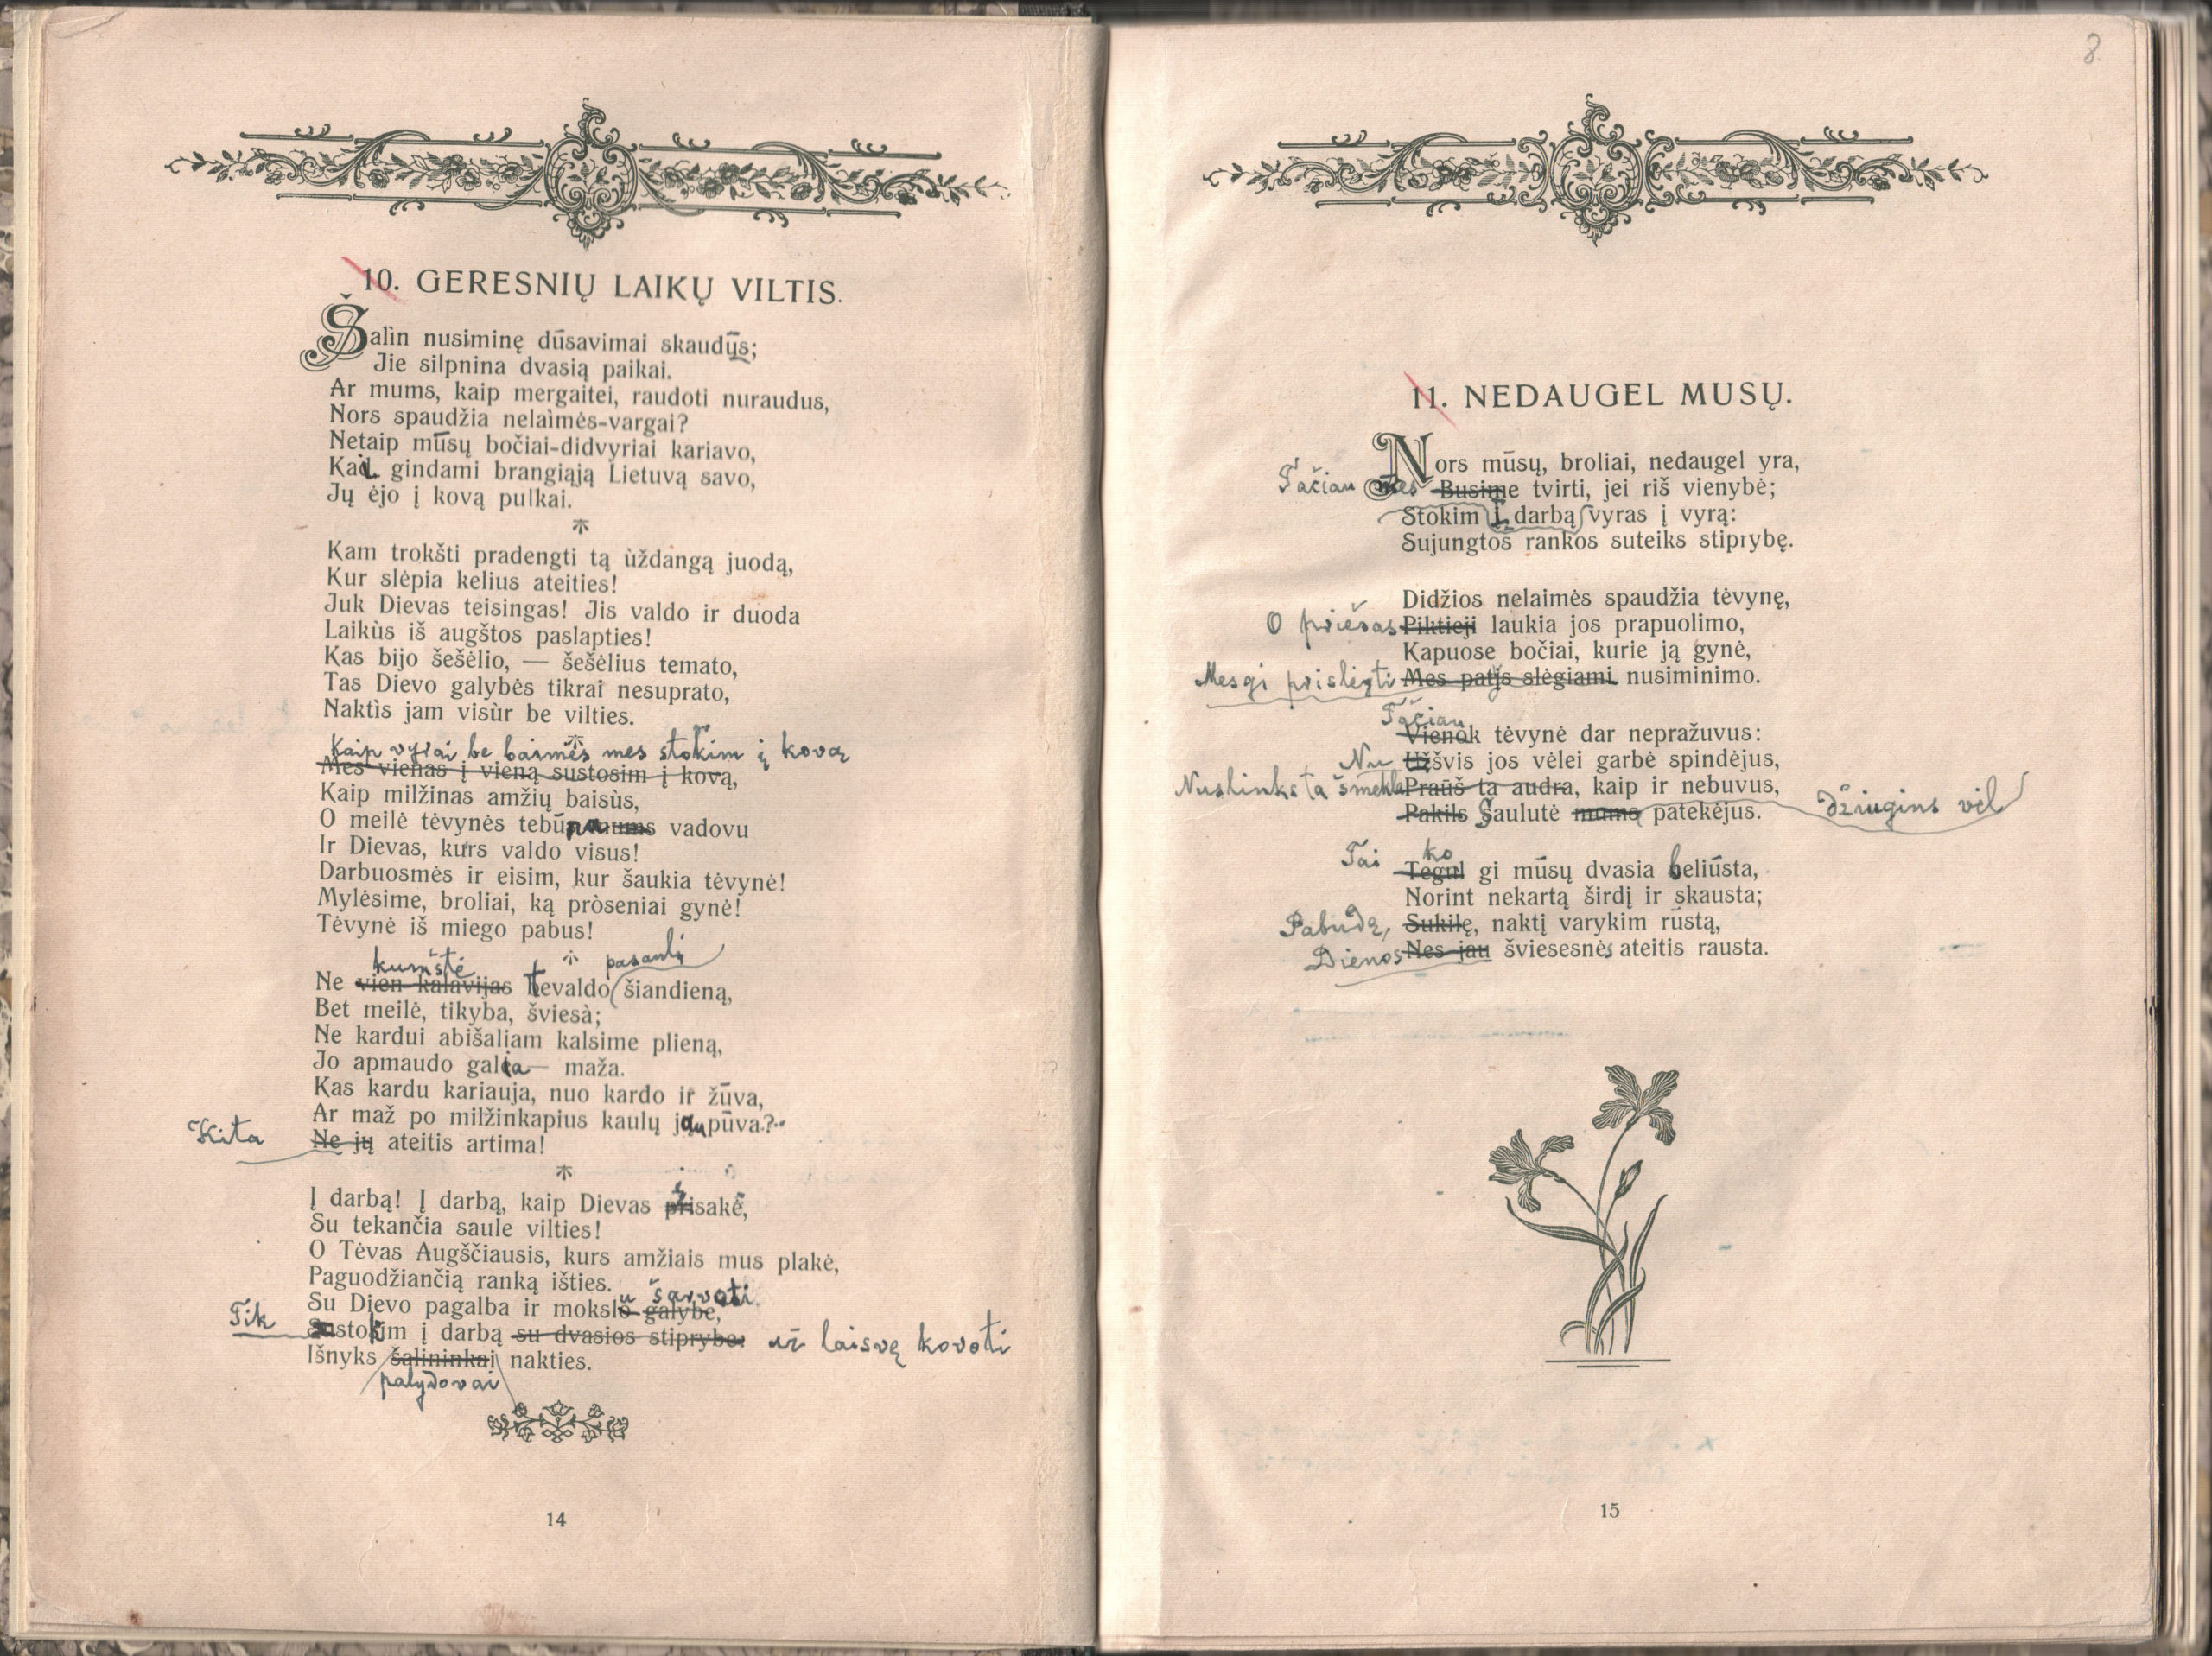 10. GERESNIŲ LAIKŲ VILTIS.
Šalin nusiminę dūsavimai skaudųs;
Jie silpnina dvasią paikai.
Ar mums, kaip mergaitei, raudoti nuraudus,
Nors spaudžia nelaìmės-vargai?
Netaip mūsų bočiai-didvyriai kariavo,
Kad gindami brangiąją Lietuvą savo,
Jų ėjo į kovą pulkai.
Kam trokšti pradengti tą ùždangą juodą,
Kur slėpia kelius ateities!
Juk Dievas teisingas! Jis valdo ir duoda
Laikùs iš augštos paslapties!
Kas bijo šešėlio, — šešėlius temato,
Tas Dievo galybės tikrai nesuprato,
Naktìs jam visùr be vilties.
Kaip vyrai be baimės mes stokim į kovą
Mes vienas į vieną sustosim į kovą,
Kaip milžinas amžių baisùs,
O meilė tėvynės tebūna mums vadovu
Ir Dievas, kurs valdo visus!
Darbuosmės ir eisim, kur šaukia tėvynė!
Mylėsime, broliai, ką pròseniai gynė!
Tėvynė iš miego pabus!
kumštė pasaulį
Ne vien kalavijas tevaldo šiandieną,
Bet meilė, tikyba, šviesà;
Ne kardui abišaliam kalsime plieną,
Jo apmaudo galia — maža.
Kas kardu kariauja, nuo kardo ir žūva,
Ar maž po milžinkapius kaulų jau pūva?
Kita Ne jų ateitis artima!
Į darbą! Į darbą, kaip Dievas prisakė,
Su tekančia saule vilties!
O Tėvas Augščiausis, kurs amžiais mus plakė,
Paguodžiančią ranką išties.
u šarvoti
Su Dievo pagalba ir mokslo galybe,
Tik Sustokim į darbą su dvasios stiprybe: ir laisvę kovoti
Išnyks šalininkai nakties.
palydovai
14
8
11. NEDAUGEL MUSŲ.
Nors mūsų, broliai, nedaugel yra,
Tačiau mes Busime tvirti, jei riš vienybė;
Stokim Į darbą vyras į vyrą:
Sujungtos rankos suteiks stiprybę.
Didžios nelaimės spaudžia tėvynę,
O priešas Piktieji laukia jos prapuolimo,
Kapuose bočiai, kurie ją gynė,
Mesgi prislėgti Mes patįs slėgiami nusiminimo.
Tačiau
Vienok tėvynė dar nepražuvus:
Nu Užšvis jos vėlei garbė spindėjus,
Nuslinks ta šmekla Praūš ta audra, kaip ir nebuvus,
Pakils Saulutė mums patekėjus. džiugins vėl
Tai ko
Tegul gi mūsų dvasia beliūsta,
Norint nekartą širdį ir skausta;
Pabudę, Sukilę, naktį varykim rūstą,
Dienos Nes jau šviesesnės ateitis rausta.
15